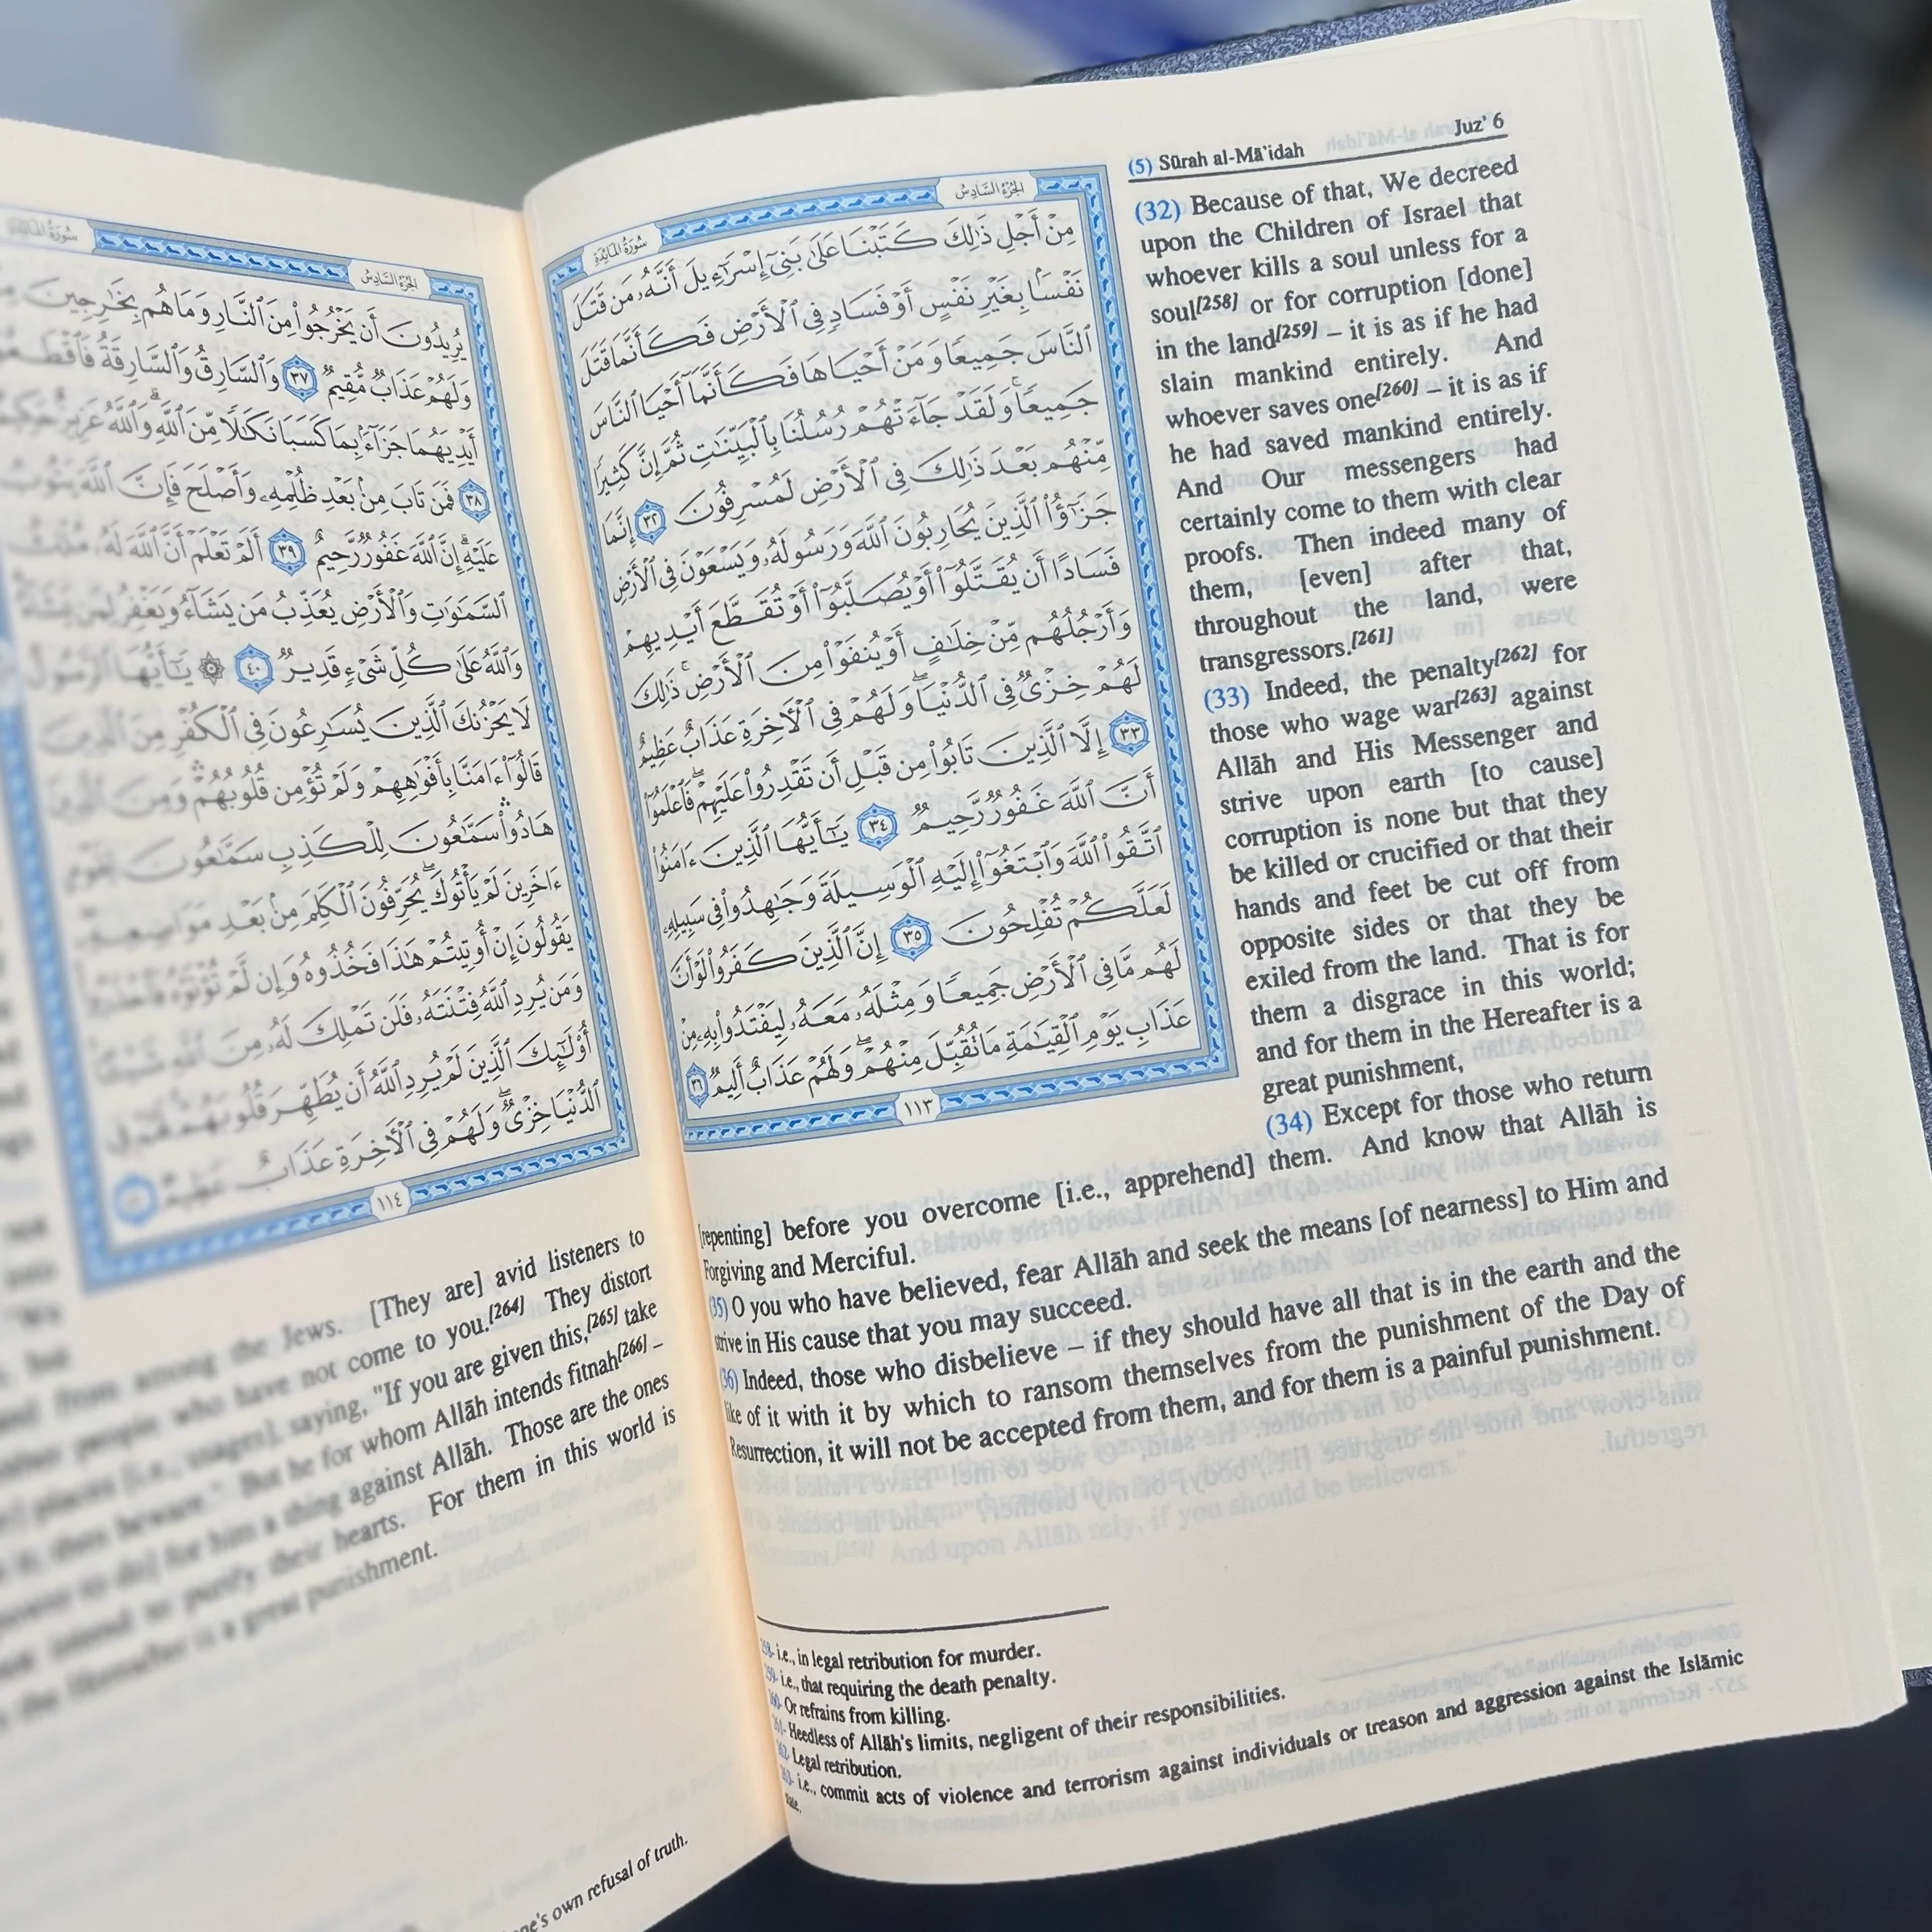 سُورَةُ المَائِدَةِ
الجُزْءُ السَّادِسُ
مِنْ أَجْلِ ذَٰلِكَ كَتَبْنَا عَلَىٰ بَنِىٓ إِسْرَٰٓءِيلَ أَنَّهُۥ مَن قَتَلَ
نَفْسًۢا بِغَيْرِ نَفْسٍ أَوْ فَسَادٍ فِى ٱلْأَرْضِ فَكَأَنَّمَا قَتَلَ
ٱلنَّاسَ جَمِيعًا وَمَنْ أَحْيَاهَا فَكَأَنَّمَآ أَحْيَا ٱلنَّاسَ
جَمِيعًا ۚ وَلَقَدْ جَآءَتْهُمْ رُسُلُنَا بِٱلْبَيِّنَٰتِ ثُمَّ إِنَّ كَثِيرًا
مِّنْهُم بَعْدَ ذَٰلِكَ فِى ٱلْأَرْضِ لَمُسْرِفُونَ ٣٢ إِنَّمَا
جَزَٰٓؤُا۟ ٱلَّذِينَ يُحَارِبُونَ ٱللَّهَ وَرَسُولَهُۥ وَيَسْعَوْنَ فِى ٱلْأَرْضِ
فَسَادًا أَن يُقَتَّلُوٓا۟ أَوْ يُصَلَّبُوٓا۟ أَوْ تُقَطَّعَ أَيْدِيهِمْ
وَأَرْجُلُهُم مِّنْ خِلَٰفٍ أَوْ يُنفَوْا۟ مِنَ ٱلْأَرْضِ ۚ ذَٰلِكَ
لَهُمْ خِزْىٌ فِى ٱلدُّنْيَا ۖ وَلَهُمْ فِى ٱلْءَاخِرَةِ عَذَابٌ عَظِيمٌ
٣٣ إِلَّا ٱلَّذِينَ تَابُوا۟ مِن قَبْلِ أَن تَقْدِرُوا۟ عَلَيْهِمْ ۖ فَٱعْلَمُوٓا۟
أَنَّ ٱللَّهَ غَفُورٌ رَّحِيمٌ ٣٤ يَٰٓأَيُّهَا ٱلَّذِينَ ءَامَنُوا۟
ٱتَّقُوا۟ ٱللَّهَ وَٱبْتَغُوٓا۟ إِلَيْهِ ٱلْوَسِيلَةَ وَجَٰهِدُوا۟ فِى سَبِيلِهِۦ
لَعَلَّكُمْ تُفْلِحُونَ ٣٥ إِنَّ ٱلَّذِينَ كَفَرُوا۟ لَوْ أَنَّ
لَهُم مَّا فِى ٱلْأَرْضِ جَمِيعًا وَمِثْلَهُۥ مَعَهُۥ لِيَفْتَدُوا۟ بِهِۦ مِنْ
عَذَابِ يَوْمِ ٱلْقِيَٰمَةِ مَا تُقُبِّلَ مِنْهُمْ ۖ وَلَهُمْ عَذَابٌ أَلِيمٌ ٣٦
١١٣
(5) Sūrah al-Mā'idah Juz' 6
(32) Because of that, We decreed
upon the Children of Israel that
whoever kills a soul unless for a
soul[258] or for corruption [done]
in the land[259] – it is as if he had
slain mankind entirely. And
whoever saves one[260] – it is as if
he had saved mankind entirely.
And Our messengers had
certainly come to them with clear
proofs. Then indeed many of
them, [even] after that,
throughout the land, were
transgressors.[261]
(33) Indeed, the penalty[262] for
those who wage war[263] against
Allāh and His Messenger and
strive upon earth [to cause]
corruption is none but that they
be killed or crucified or that their
hands and feet be cut off from
opposite sides or that they be
exiled from the land. That is for
them a disgrace in this world;
and for them in the Hereafter is a
great punishment,
(34) Except for those who return
[repenting] before you overcome [i.e., apprehend] them. And know that Allāh is
Forgiving and Merciful.
(35) O you who have believed, fear Allāh and seek the means [of nearness] to Him and
strive in His cause that you may succeed.
(36) Indeed, those who disbelieve – if they should have all that is in the earth and the
like of it with it by which to ransom themselves from the punishment of the Day of
Resurrection, it will not be accepted from them, and for them is a painful punishment.
258- i.e., in legal retribution for murder.
259- i.e., that requiring the death penalty.
260- Or refrains from killing.
261- Heedless of Allāh's limits, negligent of their responsibilities.
262- Legal retribution.
263- i.e., commit acts of violence and terrorism against individuals or treason and aggression against the Islāmic
state.
سُورَةُ المَائِدَةِ
الجُزْءُ السَّادِسُ
يُرِيدُونَ أَن يَخْرُجُوا۟ مِنَ ٱلنَّارِ وَمَا هُم بِخَٰرِجِينَ
وَلَهُمْ عَذَابٌ مُّقِيمٌ ٣٧ وَٱلسَّارِقُ وَٱلسَّارِقَةُ فَٱقْطَعُوٓا۟
أَيْدِيَهُمَا جَزَآءًۢ بِمَا كَسَبَا نَكَٰلًا مِّنَ ٱللَّهِ ۗ وَٱللَّهُ عَزِيزٌ حَكِيمٌ
٣٨ فَمَن تَابَ مِنۢ بَعْدِ ظُلْمِهِۦ وَأَصْلَحَ فَإِنَّ ٱللَّهَ يَتُوبُ
عَلَيْهِ ۗ إِنَّ ٱللَّهَ غَفُورٌ رَّحِيمٌ ٣٩ أَلَمْ تَعْلَمْ أَنَّ ٱللَّهَ لَهُۥ مُلْكُ
ٱلسَّمَٰوَٰتِ وَٱلْأَرْضِ يُعَذِّبُ مَن يَشَآءُ وَيَغْفِرُ لِمَن يَشَآءُ ۗ
وَٱللَّهُ عَلَىٰ كُلِّ شَىْءٍ قَدِيرٌ ٤٠ ۞ يَٰٓأَيُّهَا ٱلرَّسُولُ
لَا يَحْزُنكَ ٱلَّذِينَ يُسَٰرِعُونَ فِى ٱلْكُفْرِ مِنَ ٱلَّذِينَ
قَالُوٓا۟ ءَامَنَّا بِأَفْوَٰهِهِمْ وَلَمْ تُؤْمِن قُلُوبُهُمْ ۛ وَمِنَ ٱلَّذِينَ
هَادُوا۟ ۛ سَمَّٰعُونَ لِلْكَذِبِ سَمَّٰعُونَ لِقَوْمٍ
ءَاخَرِينَ لَمْ يَأْتُوكَ ۖ يُحَرِّفُونَ ٱلْكَلِمَ مِنۢ بَعْدِ مَوَاضِعِهِۦ ۖ
يَقُولُونَ إِنْ أُوتِيتُمْ هَٰذَا فَخُذُوهُ وَإِن لَّمْ تُؤْتَوْهُ فَٱحْذَرُوا۟ ۚ
وَمَن يُرِدِ ٱللَّهُ فِتْنَتَهُۥ فَلَن تَمْلِكَ لَهُۥ مِنَ ٱللَّهِ شَيْـًٔا ۚ
أُو۟لَٰٓئِكَ ٱلَّذِينَ لَمْ يُرِدِ ٱللَّهُ أَن يُطَهِّرَ قُلُوبَهُمْ ۚ لَهُمْ فِى
ٱلدُّنْيَا خِزْىٌ ۖ وَلَهُمْ فِى ٱلْءَاخِرَةِ عَذَابٌ عَظِيمٌ
١١٤
from among the Jews. [They are] avid listeners to
people who have not come to you.[264] They distort
places [i.e., usages], saying, "If you are given this,[265] take
it, then beware." But he for whom Allāh intends fitnah[266] –
power to do] for him a thing against Allāh. Those are the ones
intend to purify their hearts. For them in this world is
the Hereafter is a great punishment.
one's own refusal of truth.